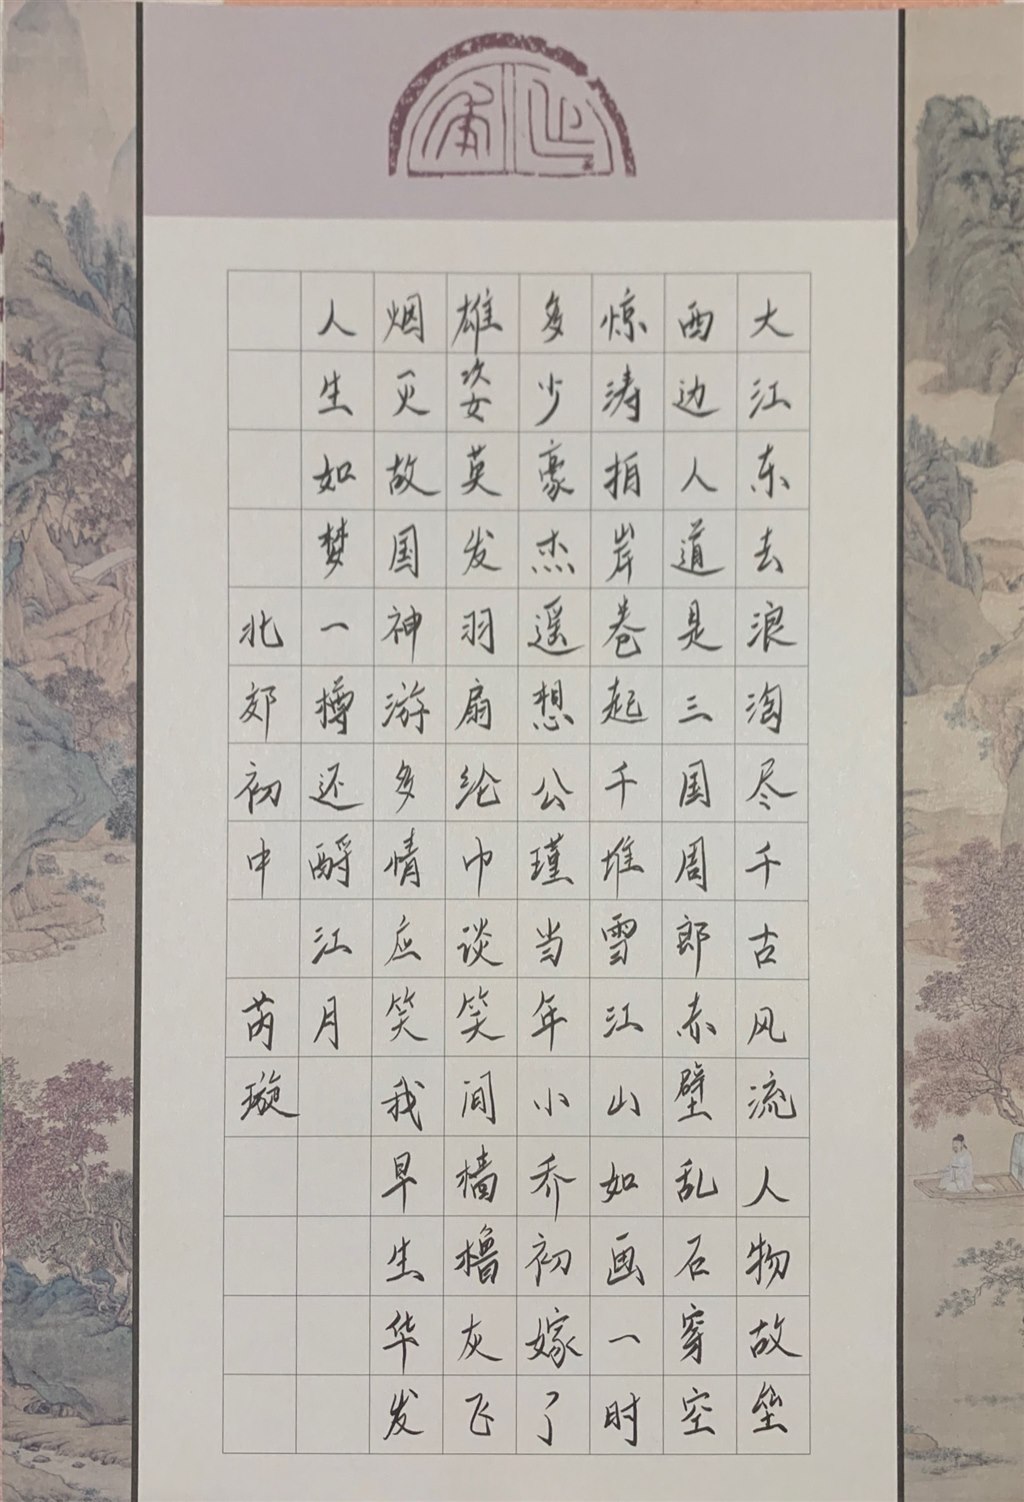 大江东去浪淘尽千古风流人物故垒
西边人道是三国周郎赤壁乱石穿空
惊涛拍岸卷起千堆雪江山如画一时
多少豪杰遥想公瑾当年小乔初嫁了
雄姿英发羽扇纶巾谈笑间樯橹灰飞
烟灭故国神游多情应笑我早生华发
人生如梦一樽还酹江月
北郊初中 芮璇